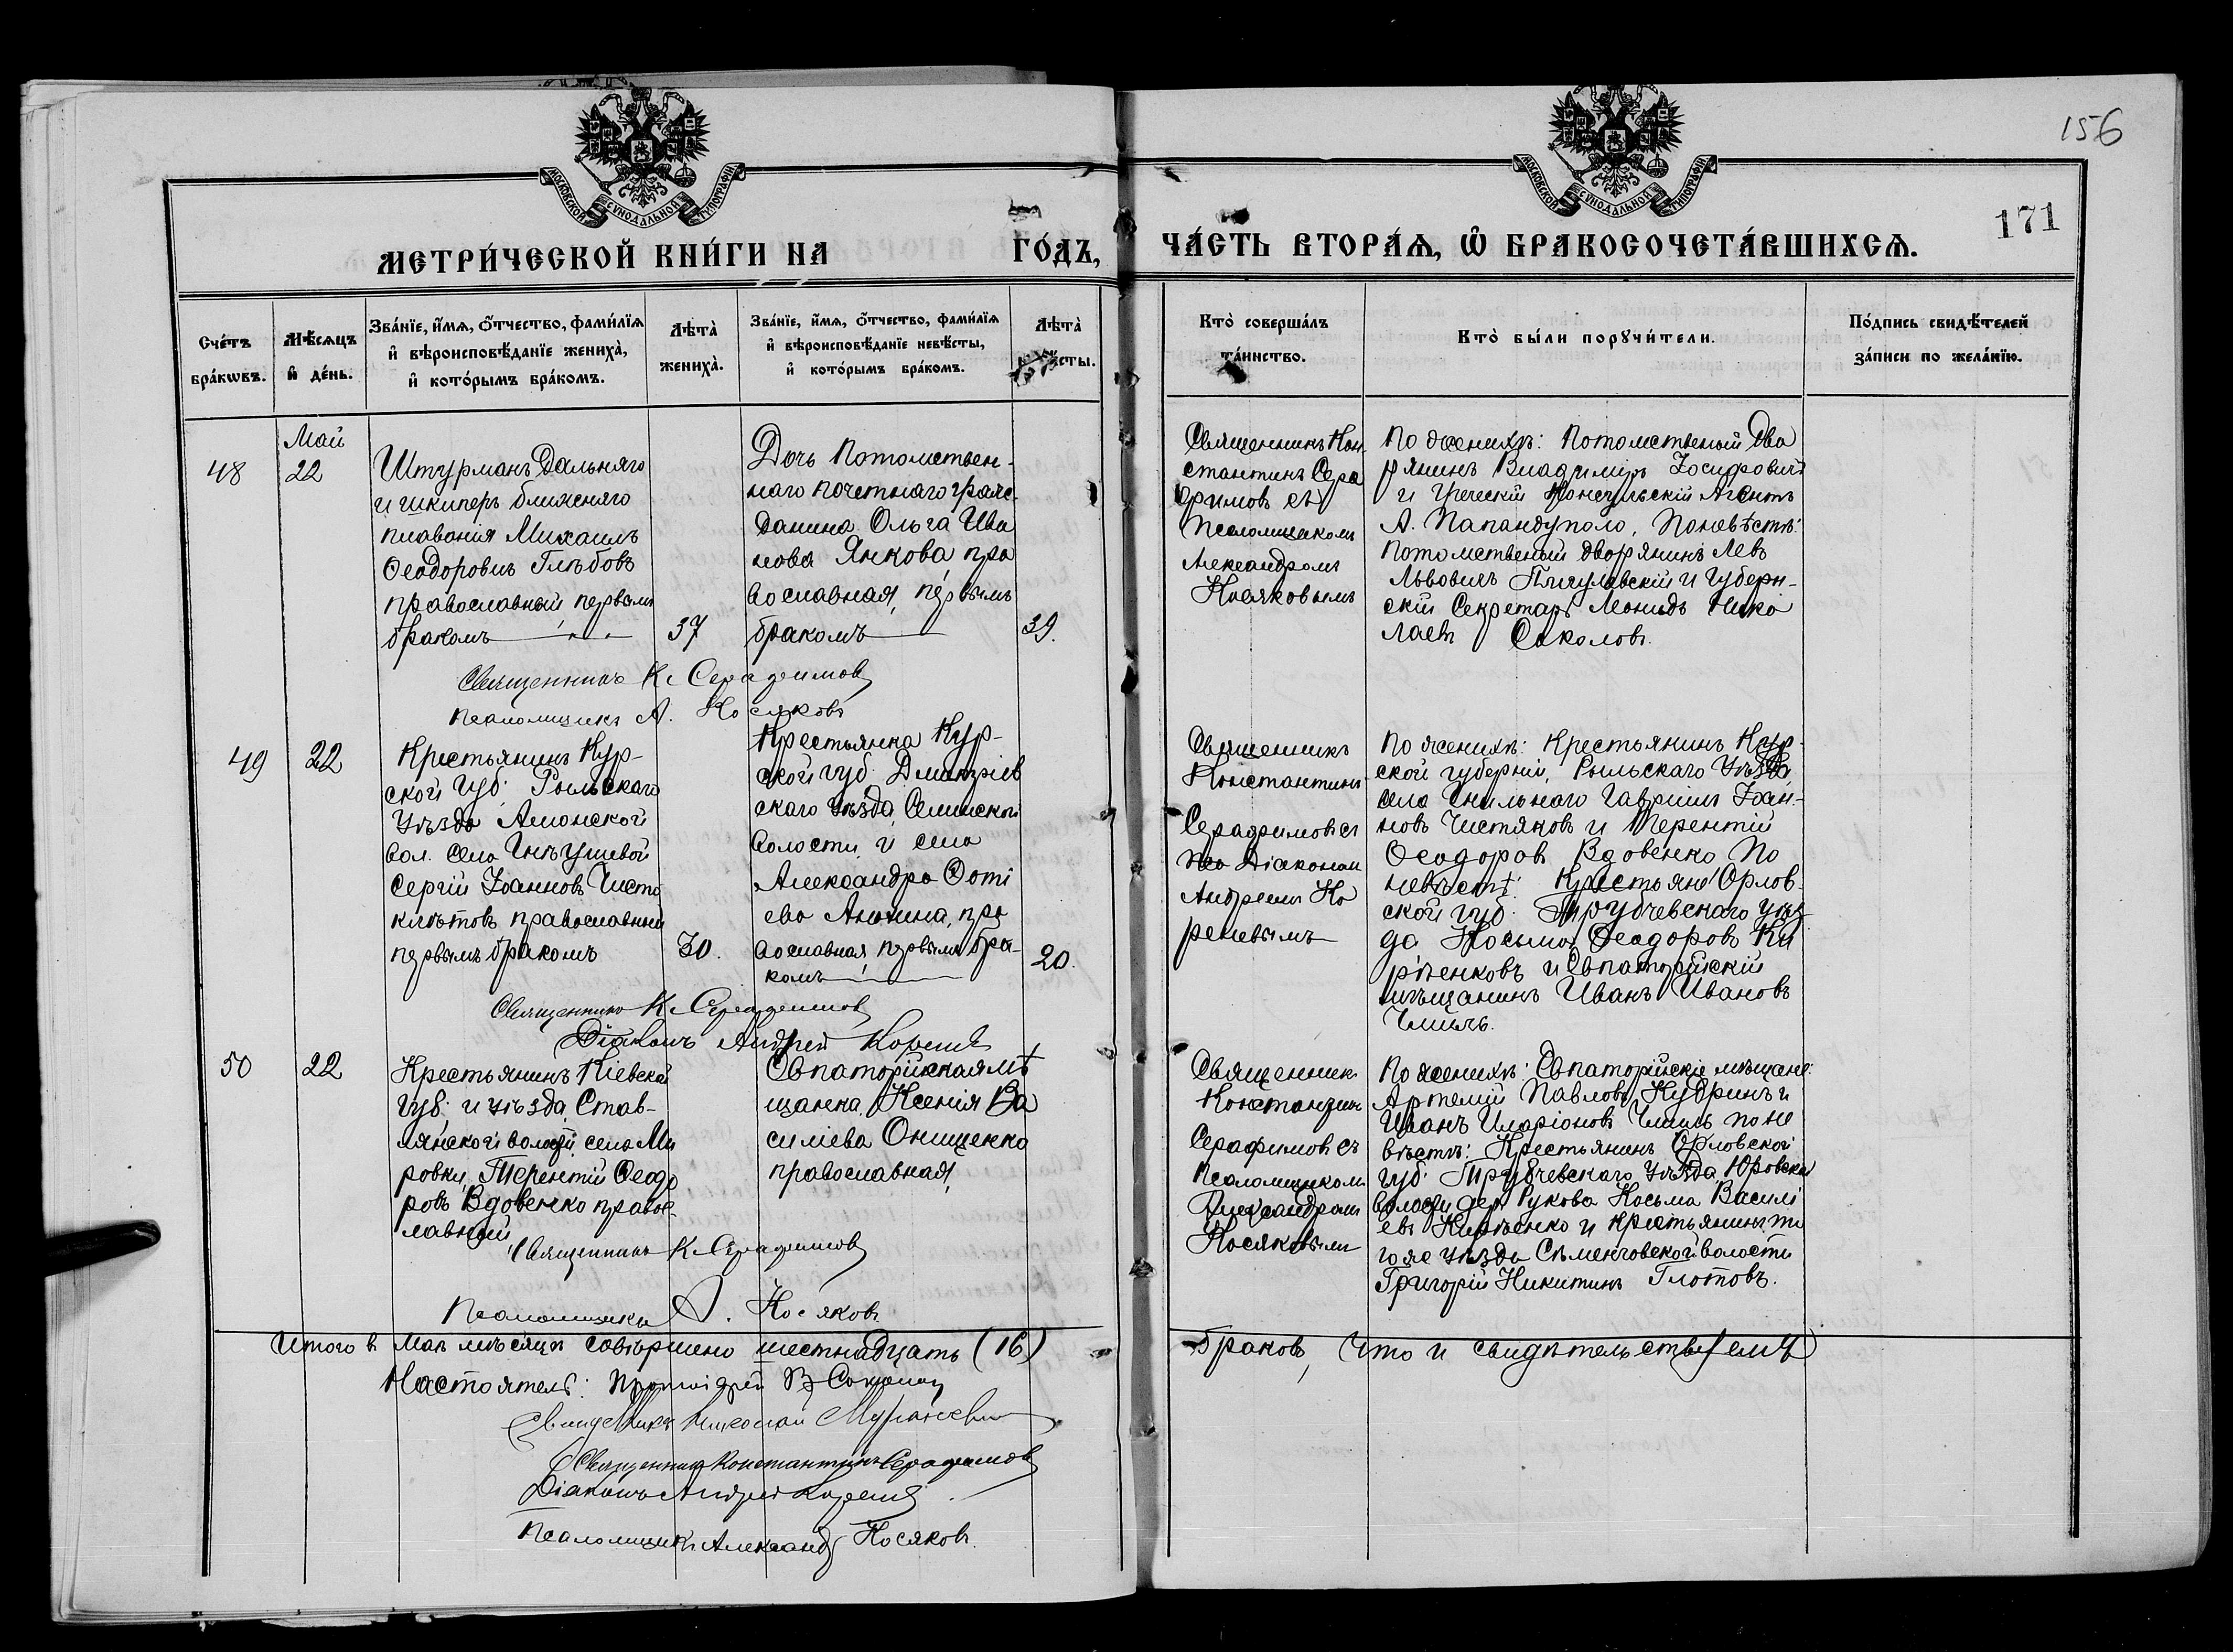 156
МОСКОВСКОЙ СѴНОДАЛЬНОЙ ТѴПОГРАФІИ
МОСКОВСКОЙ СѴНОДАЛЬНОЙ ТѴПОГРАФІИ
171
МЕТРИ́ЧЕСКОЙ КНИ́ГИ НА ГО́ДЪ,
ЧА́СТЬ ВТОРА́Я, Ѡ҆ БРАКОСОЧЕТА́ВШИХСѦ.
Сче́тъ бра́кѡвъ.
Мѣ́сяцъ и҆ де́нь.
Зва́нїе, и҆́мѧ, ѻ҆́тчество, фами́лїѧ
и҆ вѣроисповѣ́данїе жениха̀,
и҆ кото́рымъ бра́комъ.
Лѣта̀ жениха̀.
Зва́нїе, и҆́мѧ, ѻ҆́тчество, фами́лїѧ
и҆ вѣроисповѣ́данїе невѣ́сты,
и҆ кото́рымъ бра́комъ.
Лѣта̀ невѣ́сты.
Кто̀ соверша́лъ
та́инство.
Кто̀ бы́ли порꙋчи́тели.
По́дпись свидѣ́телей
за́писи по жела́нїю.
48
Май
22
Штурманъ Дальняго
и шкиперъ ближняго
плаванія Михаилъ
Ѳеодоровичъ Глѣбовъ
православный, первымъ
бракомъ
37
Дочь Потомствен-
наго почетнаго граж-
данина Ольга Ива
нова Янкова, пра
вославная, первымъ
бракомъ
39.
Священникъ Кон
стантинъ Сера
фимовъ съ
Псаломщикомъ
Александромъ
Косяковымъ
По женихѣ: Потомственный Дво
рянинъ Владиміръ Іосифовичъ
и Греческій Консульскій Агентъ
А. Папандуполо, По невѣстѣ:
Потомственный дворянинъ Левъ
Львовичъ Пигулевскій и Губерн-
скій Секретарь Леонидъ Нико
лаевъ Соколовъ.
Священникъ К. Серафимовъ
Псаломщикъ А. Косяковъ
49
22
Крестьянинъ Кур-
ской губ. Рыльскаго
Уѣзда Амонской
вол. села
Сергій Іоанновъ Чисто
клѣтовъ православный
первымъ бракомъ
30.
Крестьянка Кур-
ской губ. Дмитріев
скаго Уѣзда,
волости и села
Александра Фоті
ева Анохина, пра
вославная, первымъ бра-
комъ
20.
Священникъ
Константинъ
Серафимовъ съ
Діакономъ
Андреемъ Ко
реневымъ
По женихѣ: Крестьянинъ Кур-
ской губерніи, Рыльскаго Уѣзда
села Гавріилъ Іоан-
новъ Чистяковъ и Терентій
Ѳеодоровъ Вдовенко По
невѣстѣ: Крестьяне Орлов-
ской губ. Трубчевскаго уѣз
да Косьма Ѳеодоровъ Ки
рѣенковъ и Евпаторійскій
мѣщанинъ Иванъ Ивановъ
Чмиль.
Священникъ К. Серафимовъ
Діаконъ Андрей Кореневъ
50
22
Крестьянинъ Кіевской
губ. и уѣзда, Став-
лянской волости, села Ми
ровки, Терентій Ѳеодо
ровъ Вдовенко правос-
лавный
Евпаторійская мѣ
щанка, Ксенія Ва
силіева Онищенко
православная,
Священникъ
Константинъ
Серафимовъ съ
Псаломщикомъ
Александромъ
Косяковымъ
По женихѣ: Евпаторійскіе мѣщане:
Артемій Павловъ Кудринъ и
Иванъ Иларіоновъ Чмиль по не
вѣстѣ: Крестьянинъ Орловской
губ. Трубчевскаго Уѣзда, Юровской
волости дер. Рукова Косьма Василі
евъ Кирѣенко и крестьянинъ то
го же уѣзда Семенчовской волости
Григорій Никитинъ Глотовъ.
Священникъ К. Серафимовъ
Псаломщикъ А. Косяковъ
Итого в Маѣ мѣсяцѣ совершено шестнадцать (16)
браковъ, что и свидѣтельствуемъ
Настоятель: Протоіерей В.
Священникъ Николай
Священникъ Константинъ Серафимовъ
Діаконъ Андрей Кореневъ
Псаломщикъ Александръ Косяковъ